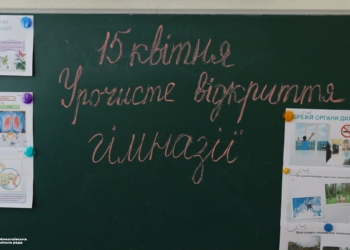 15 квітня
Урочисте відкриття
гімназії
БЕРЕЖИ ОРГАНИ ДИ